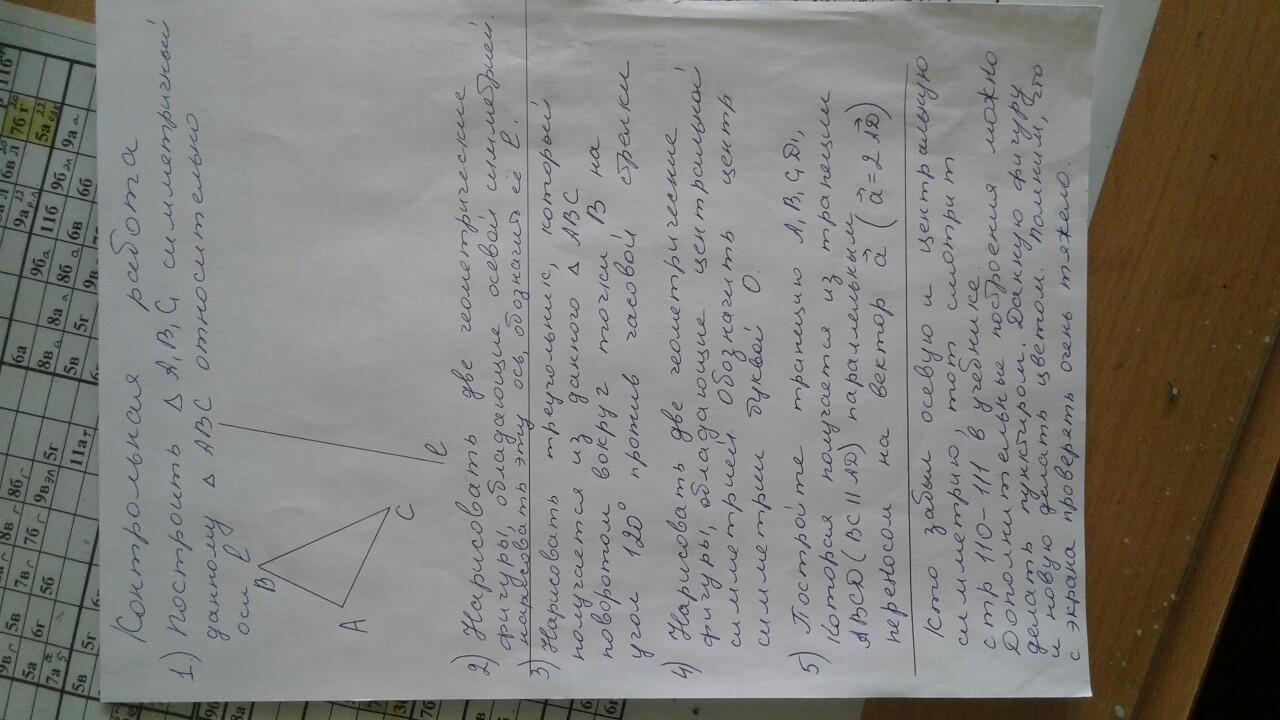 Контрольная работа
1.) Построить Δ A₁B₁C₁ симметричный
данному Δ ABC относительно
оси ℓ
B
A
C
ℓ
2) Нарисовать две геометрические
фигуры, обладающие осевой симметрией.
нарисовать эту ось, обозначить её ℓ.
3) Нарисовать треугольник, который
получается из данного Δ ABC
поворотом вокруг точки B на
угол 120° против часовой стрелки
4) Нарисовать две геометрические
фигуры, обладающие центральной
симметрией. Обозначить центр
симметрии буквой O.
5) Постройте трапецию A₁B₁C₁D₁,
которая получается из трапеции
ABCD (BC || AD) параллельным
переносом на вектор a⃗ (a⃗ = 2 AD⃗)
Кто забыл осевую и центральную
симметрию, тот смотрит
стр 110-111 в учебнике.
Дополнительные построения можно
делать пунктиром. Данную фигуру
и новую делать цветом. Помним, что
с экрана проверять очень тяжело.